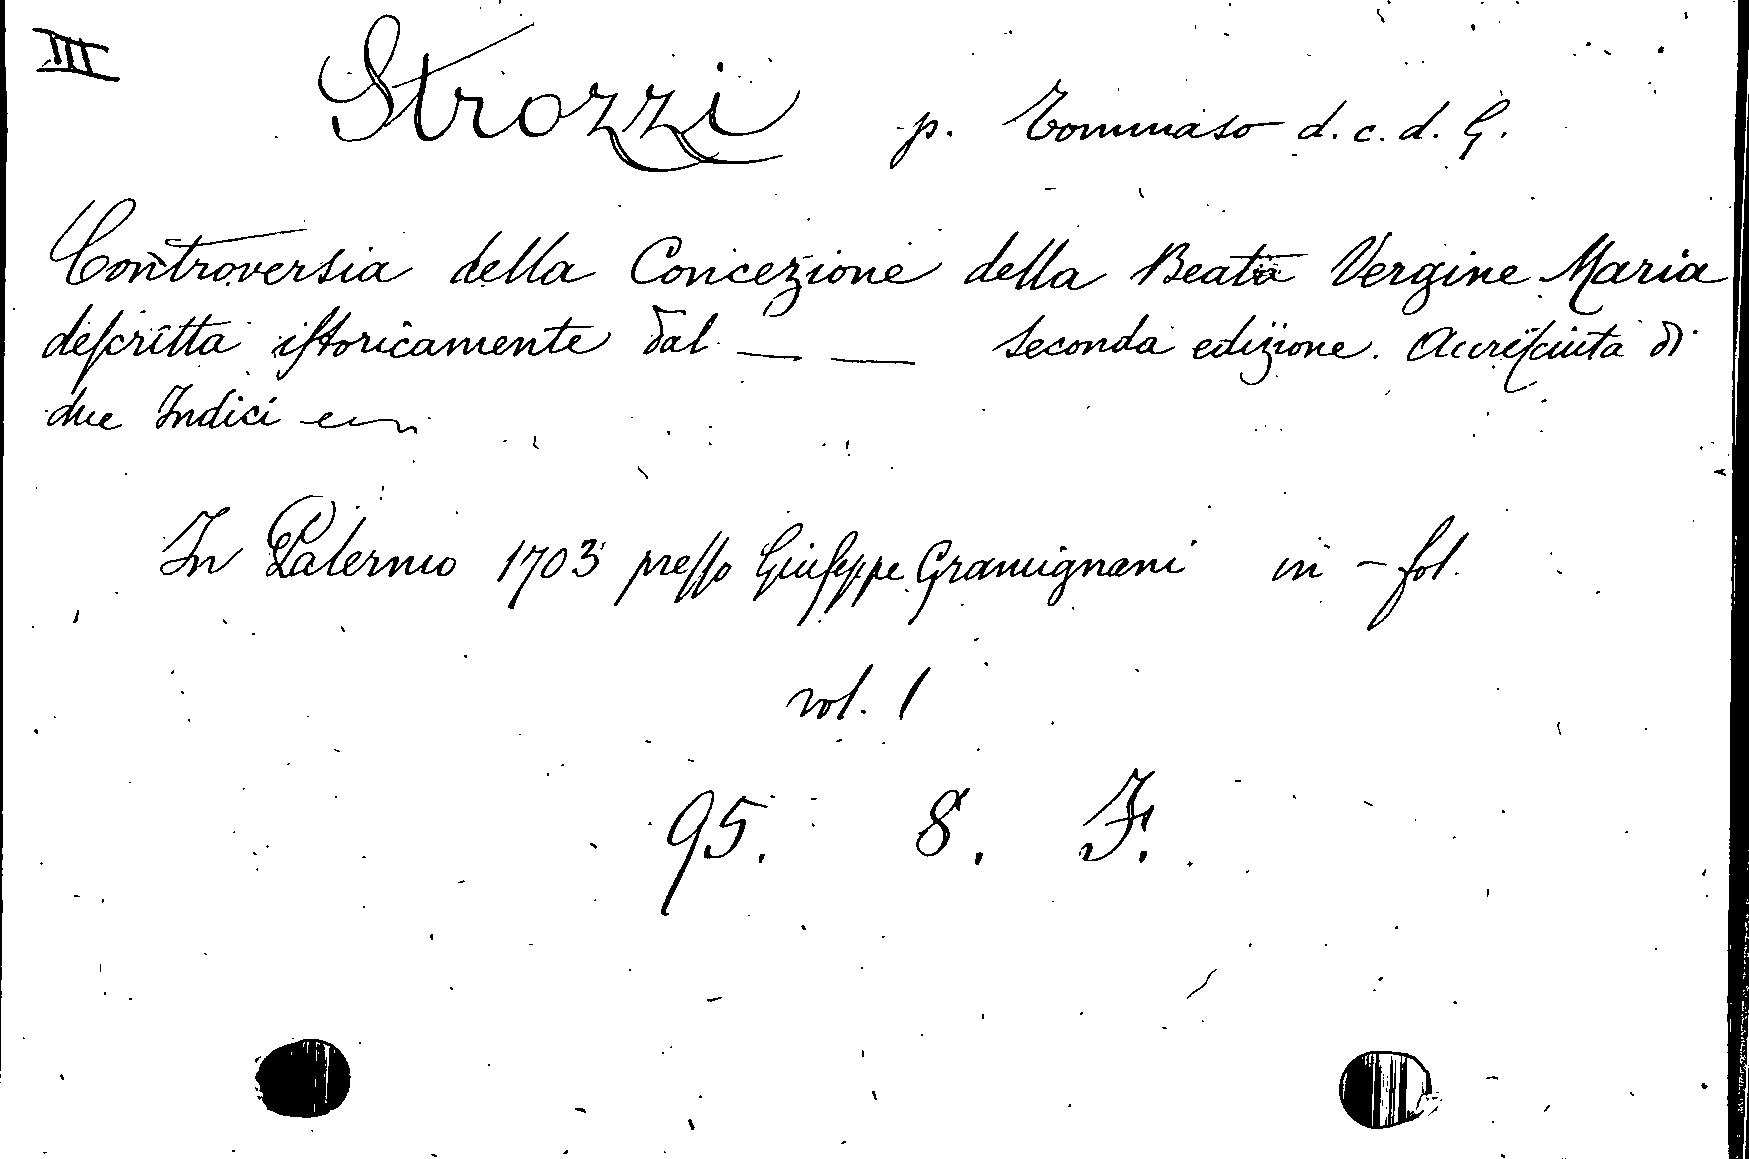 III
Strozzi p. Tommaso d. c. d. G.
Controversia della Concezione della Beata Vergine Maria
deſcritta iſtoricamente dal __ __ seconda edizione. Accreſciuta di
due Indici
In Palermo 1703 preſſo Giuſeppe Gramignani in - fol.
vol. 1
95. 8. F.